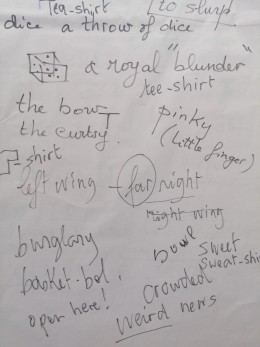 Tea-shirt
[to slurp
dice a throw of dice
a royal "blunder"
tee-shirt
the bow
pinky
the curtsy
(little finger)
T-shirt
left wing – far right
right wing
burglary
Bowl
sweet
sweat-shi
basket-bal.
crowded
open here!
weird news